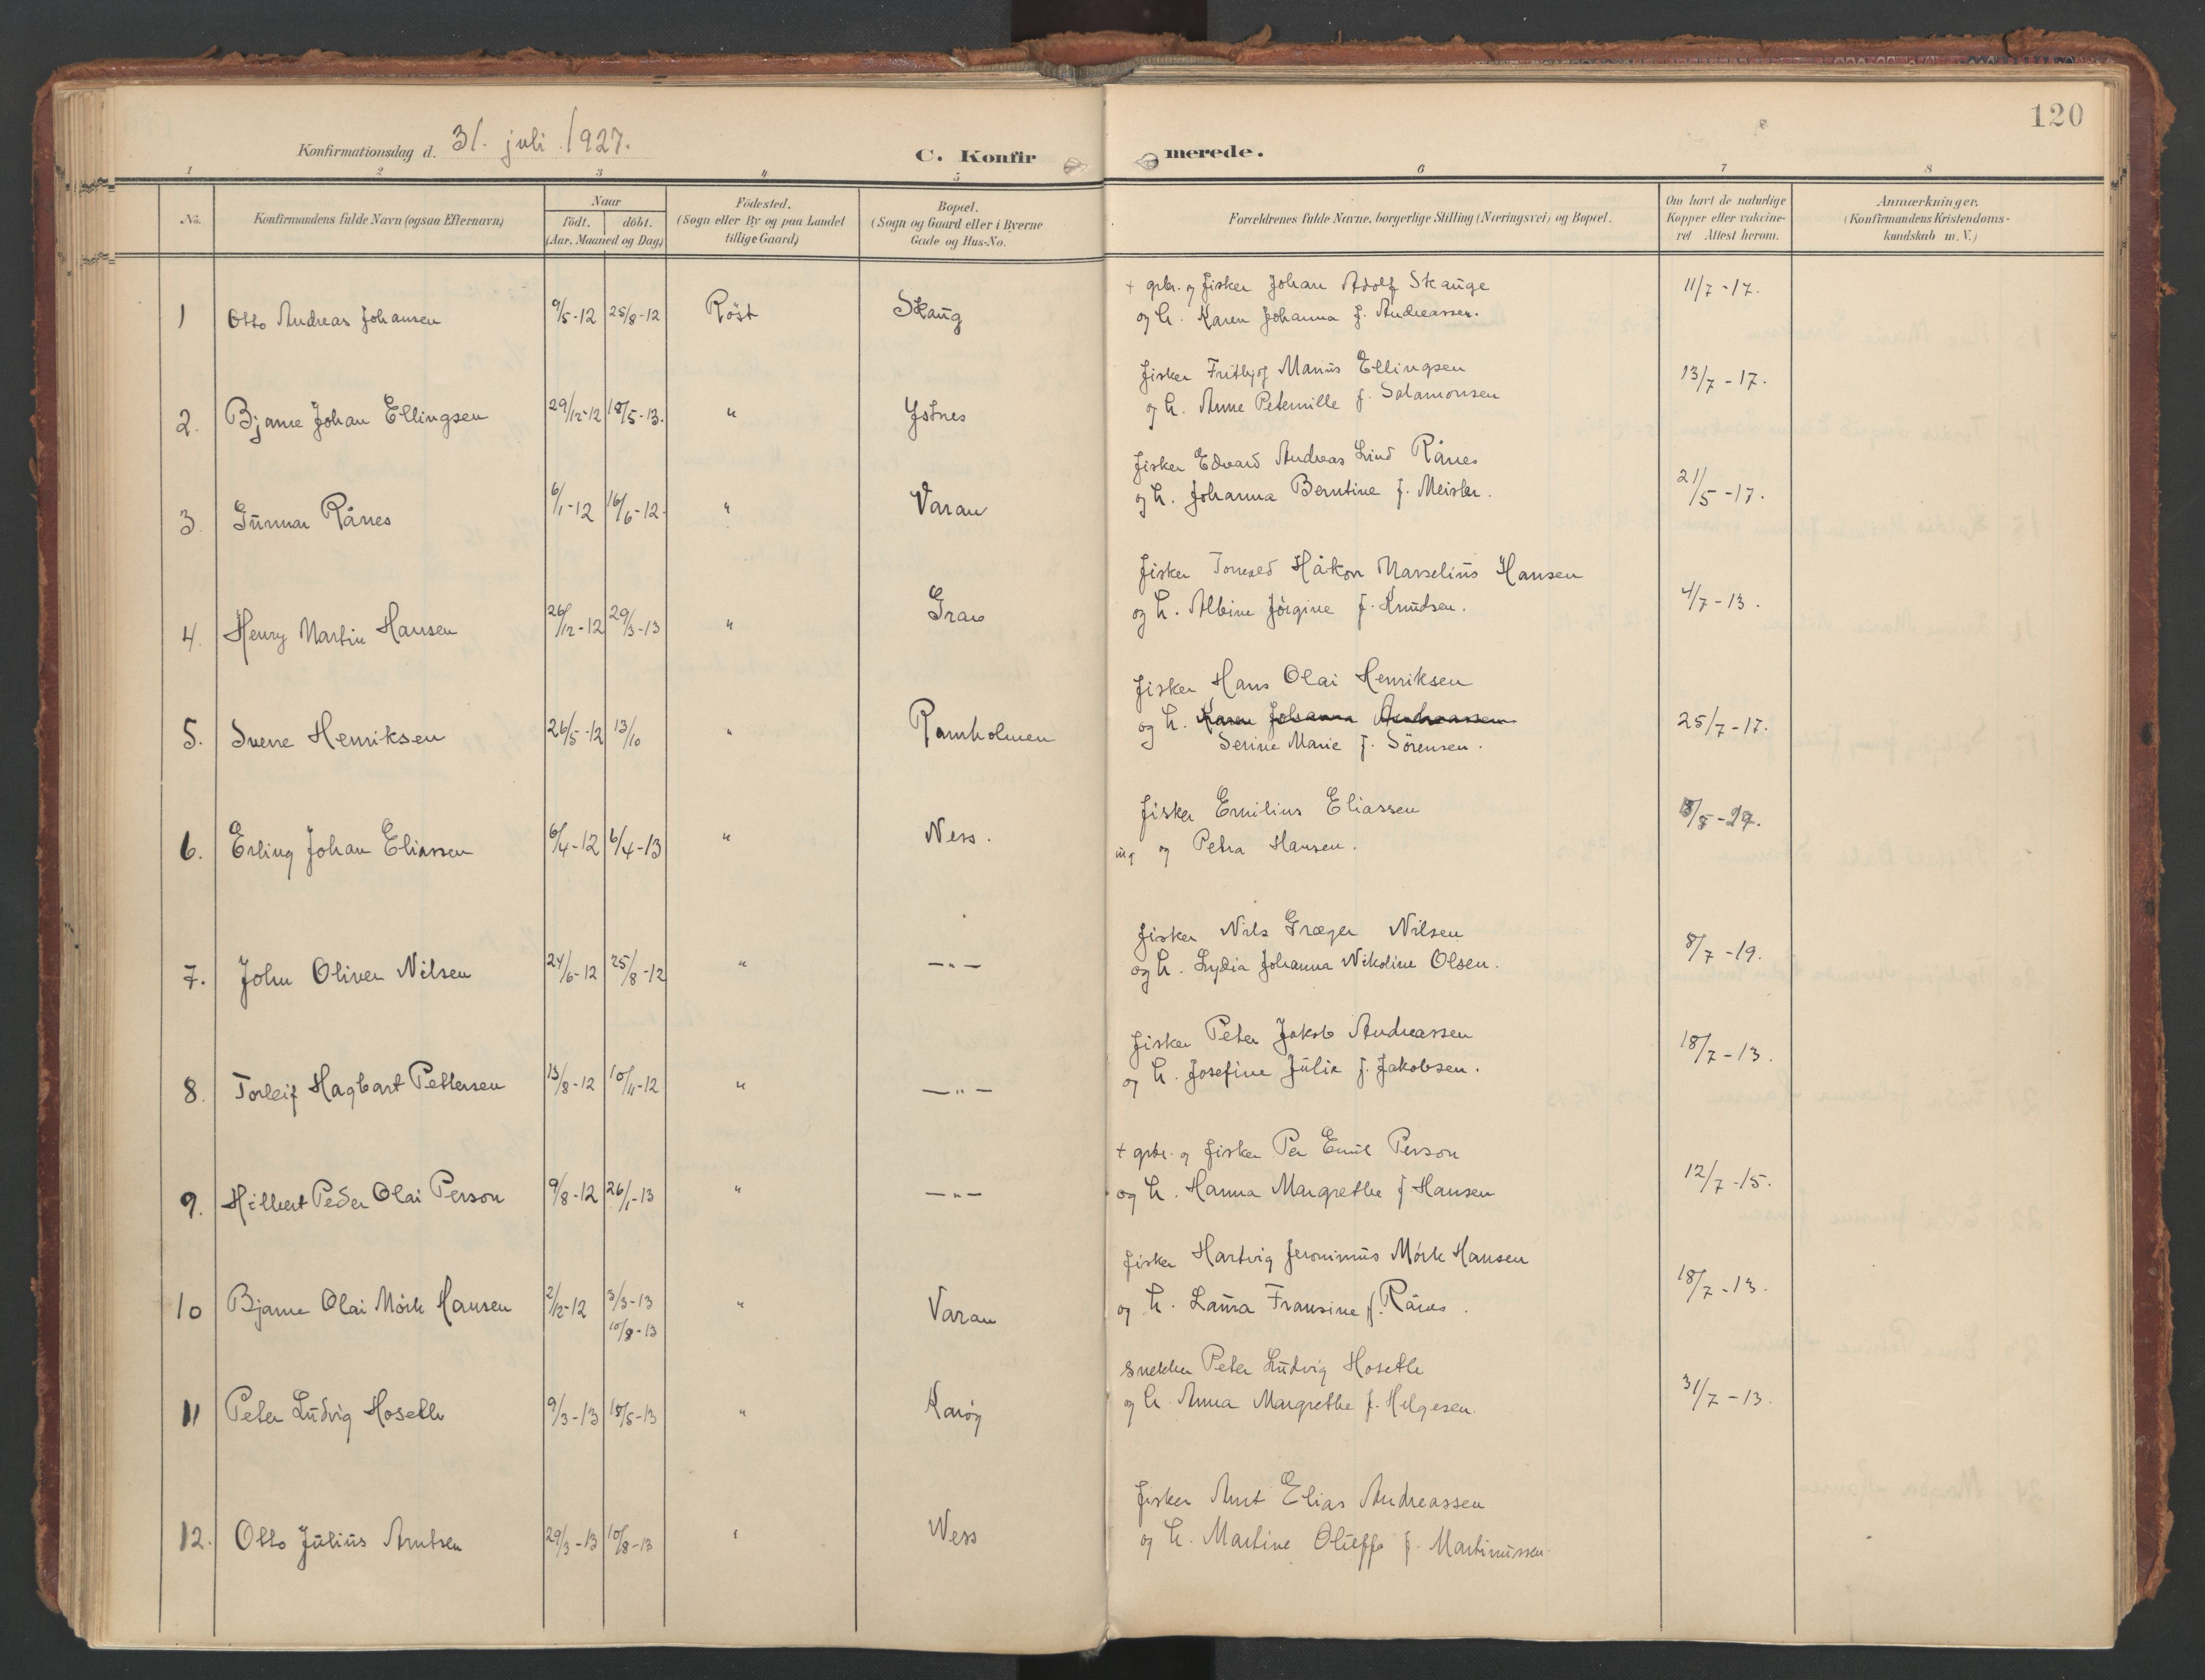 120
Konfirmationsdag d. 31. juli 1927.
C. Konfirmerede.
1 2 3 4 5 6 7 8
No.
Konfirmandens fulde Navn (ogsaa Efternavn)
Naar
født. døbt.
(Aar, Maaned og Dag)
Fødested.
(Sogn eller By og paa Landet
tillige Gaard)
Bopæl.
(Sogn og Gaard eller i Byerne
Gade og Hus-No.
Forældrenes fulde Navne, borgerlige Stilling (Næringsvei) og Bopæl.
Om havt de naturlige
Kopper eller vaccine-
ret Attest herom.
Anmærkninger.
(Konfirmandens Kristendoms-
kundskab m. V.)
1 Otto Andreas Johansen 9/5-12 25/8-12 Röst Skaug
+ gbr. og fisker Johan Adolf Skauge
og h. Karen Johanna f. Andreassen. 11/7-17.
2. Bjarne Johan Ellingsen 29/12-12 18/5-13. " Ystnes
fisker Fritbjof Marius Ellingsen
og h. Anne Peternille f. Salamonsen 13/7-17.
3 Gunnar Rånes 6/1-12 16/6-12. " Varau
fisker Edvard Andreas Lind Rånes
og h. Johanna Berntine f. Meisler. 21/5-17.
4. Henry Martin Hansen 26/12-12 29/3-13 " Grau
fisker Håkon Marselius Hansen
og h. Albine Jörgine f. Knudsen. 4/7-13.
5. Sverre Henriksen 26/5-12 13/10 " Ramholmen
fisker Hans Olai Henriksen
og h. Karen Johanna Andreassen
Serine Marie f. Sörensen. 25/7-17.
6. Erling Johan Eliassen 6/4-12 6/4-13 " Ness.
fisker Emilius Eliassen
ug og Petra Hansen.
7. John Oliver Nilsen 24/6-12 25/8-12 " —"—
fisker Nils Græger Nilsen
og h. Lydia Johanna Nikoline Olsen. 8/7-19.
8. Torleif Hagbart Pettersen 13/8-12 10/11-12 " —"—
fisker Peter Jakob Andreassen
og h. Josefine Julie f. Jakobsen. 18/7-13.
9. Hilbert Peder Olai Person 9/8-12 26/1-13 " —"—
+ gbr. og fisker Per Emil Person
og h. Hanna Margrethe f. Hansen 12/7-15.
10 Bjarne Olai Mörk Hansen 2/12-12 3/3-13 " Varau
10/8-13
fisker Hartvig Jeronimus Mörk Hansen
og h. Laura Fransine f. Rånes. 18/7-13.
11 Peter Ludvig Hoseth 9/3-13 18/5-13 " Karöy
snekker Peter Ludvig Hoseth
og h. Anna Margrethe f. Helgesen. 31/7-13.
12. Otto Julius Arntsen 29/3-13 10/8-13 " Ness
fisker Arnt Elias Andreassen
og h. Martine f. Martinussen